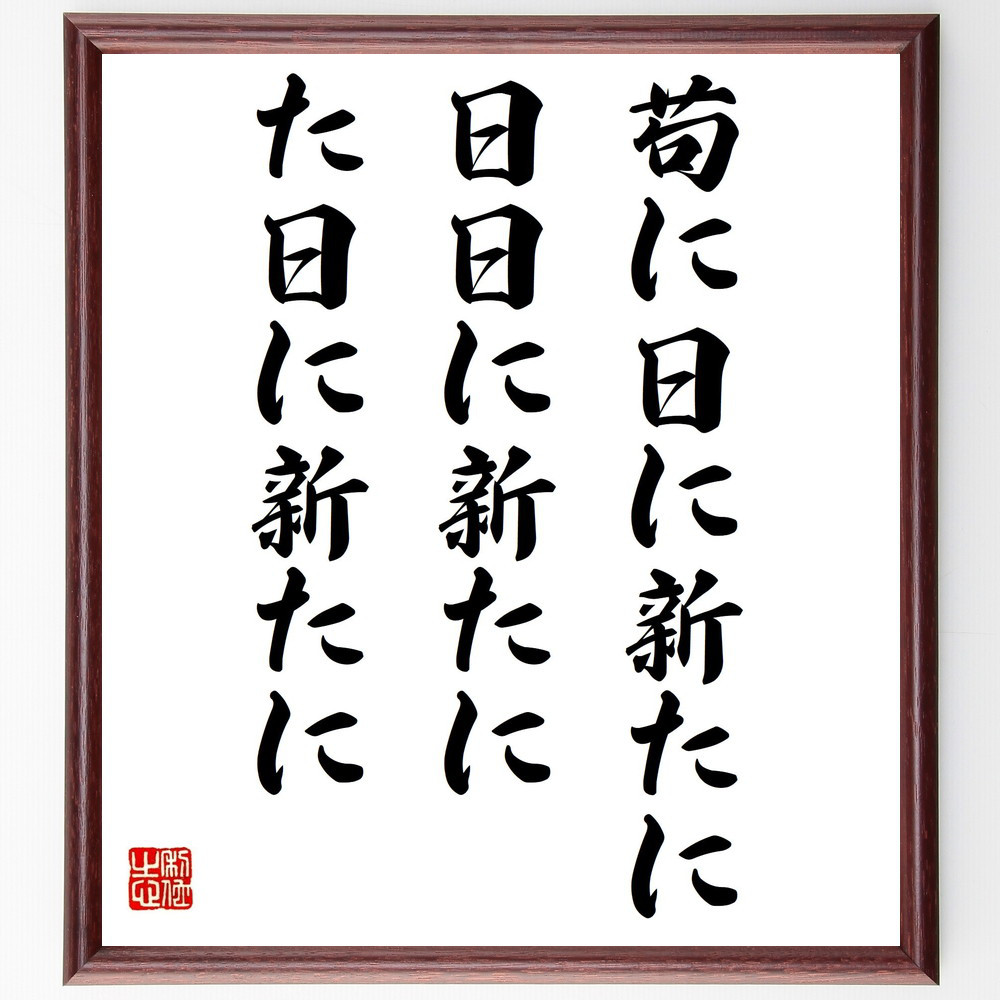 苟に日に新たに
日日に新たに
た日に新たに